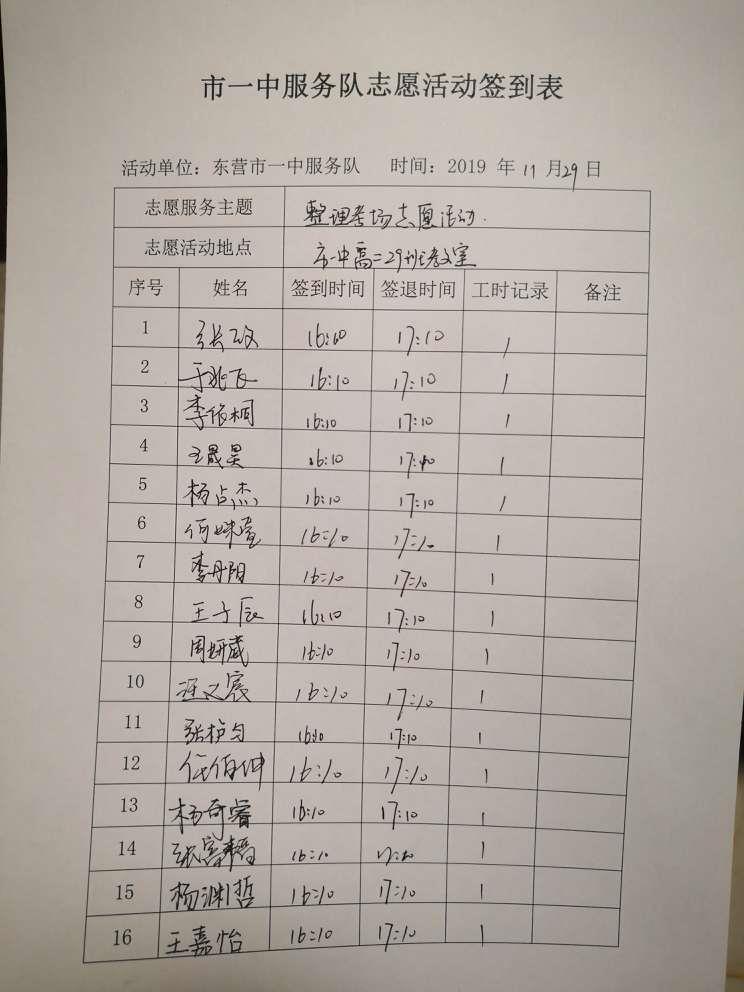 市一中服务队志愿活动签到表
活动单位：东营市一中服务队 时间：2019 年 11 月 29 日
志愿服务主题 整理考场志愿活动.
志愿活动地点 市一中高二29班教室
序号 姓名 签到时间 签退时间 工时记录 备注
1 张政 16:10 17:10 1
2 于兆飞 16:10 17:10 1
3 李依桐 16:10 17:10 1
4 王晟昊 16:10 17:10 1
5 杨占杰 16:10 17:10 1
6 何姝萱 16:10 17:10 1
7 李丹阳 16:10 17:10 1
8 王子辰 16:10 17:10 1
9 周妍葳 16:10 17:10 1
10 16:10 17:10 1
11 16:10 17:10 1
12 任伯坤 16:10 17:10 1
13 杨奇睿 16:10 17:10 1
14 16:10 17:10 1
15 杨渊哲 16:10 17:10 1
16 王嘉怡 16:10 17:10 1